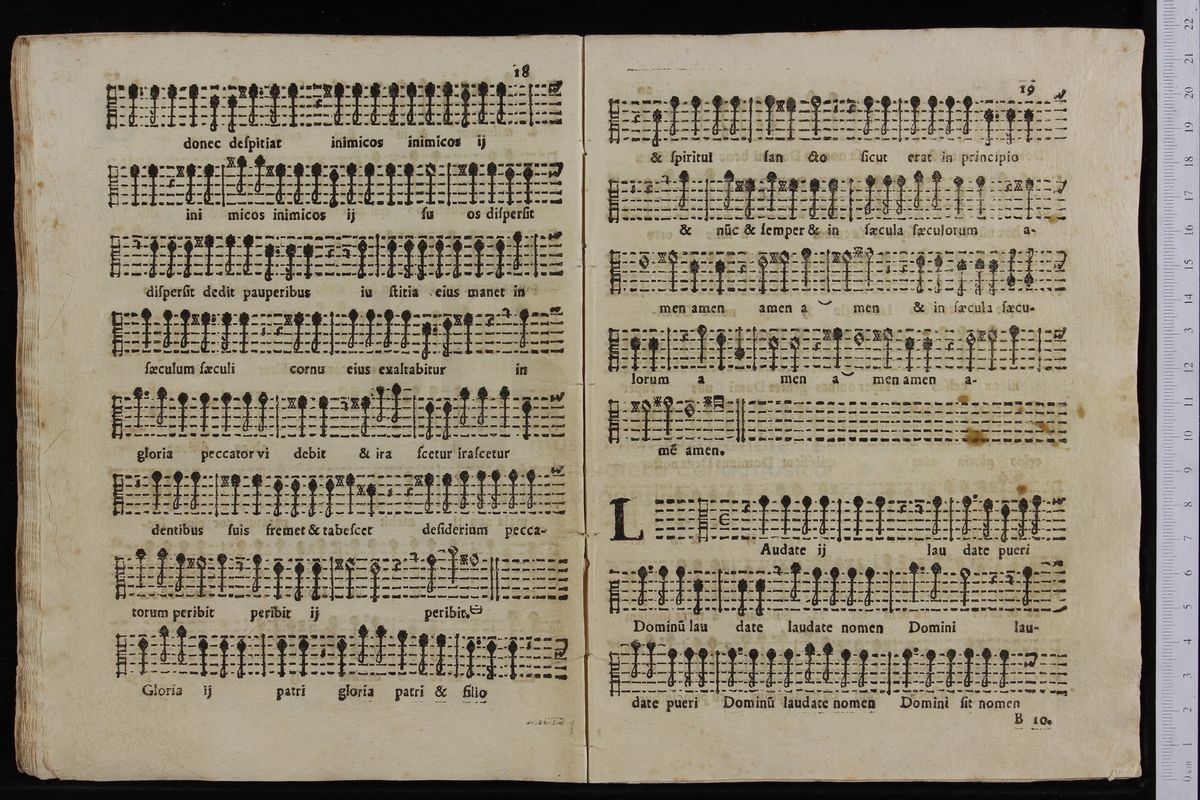 18
donec deſpitiat inimicos inimicos ij
ini micos inimicos ij ſu os diſperſit
diſperſit dedit pauperibus iu ſtitia eius manet in
ſæculum ſæculi cornu eius exaltabitur in
gloria peccator vi debit & ira ſcetur iraſcetur
dentibus ſuis fremet & tabeſcet deſiderium pecca-
torum peribit peribit ij peribit.
Gloria ij patri gloria patri & filio
19
& ſpiritui ſan cto ſicut erat in principio
& nūc & ſemper & in ſæcula ſæculorum a-
men amen amen a men & in ſæcula ſæcu-
lorum a men a men amen a-
mē amen.
L
Audate ij lau date pueri
Dominū lau date laudate nomen Domini lau-
date pueri Dominū laudate nomen Domini ſit nomen
B 10.